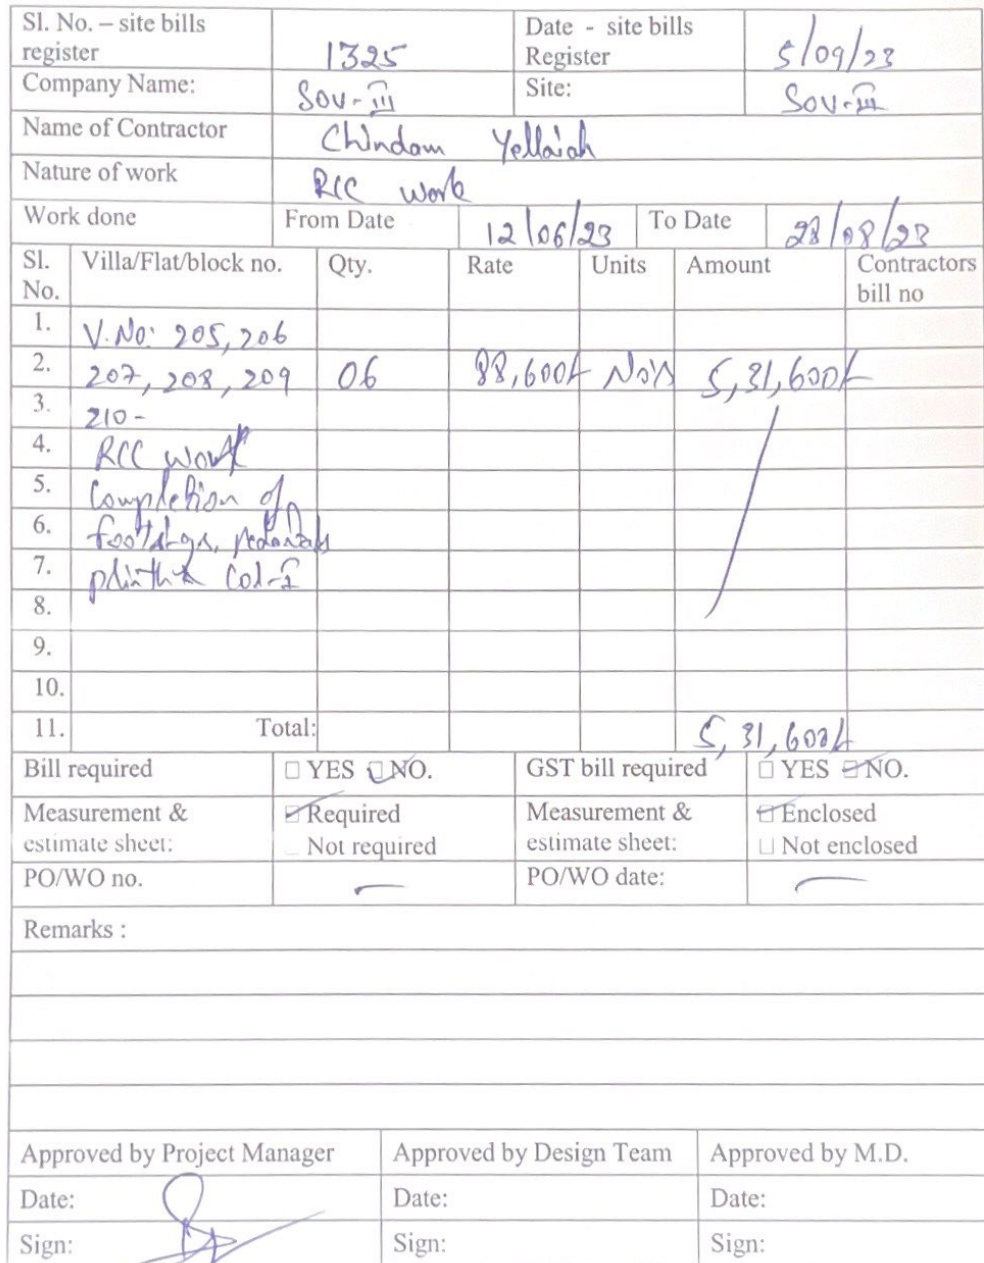 Sl. No. – site bills register 1325 Date - site bills Register 5/09/23
Company Name: SOV-III Site: SOV-III
Name of Contractor Chindam Yellaiah
Nature of work RCC work
Work done From Date 12/06/23 To Date 28/08/23
Sl. No. Villa/Flat/block no. Qty. Rate Units Amount Contractors bill no
1. V.No: 205, 206
2. 207, 208, 209 06 88,600/- No's 5,31,600/-
3. 210-
4. RCC work
5. Completion of
6. footings, pedastals
7. plinth & Col-I
8.
9.
10.
11. Total: 5,31,600/-
Bill required □ YES □ NO. GST bill required □ YES □ NO.
Measurement & estimate sheet: □ Required Measurement & estimate sheet: □ Enclosed
Not required □ Not enclosed
PO/WO no. – PO/WO date: –
Remarks :
Approved by Project Manager Approved by Design Team Approved by M.D.
Date: Date: Date:
Sign: Sign: Sign: